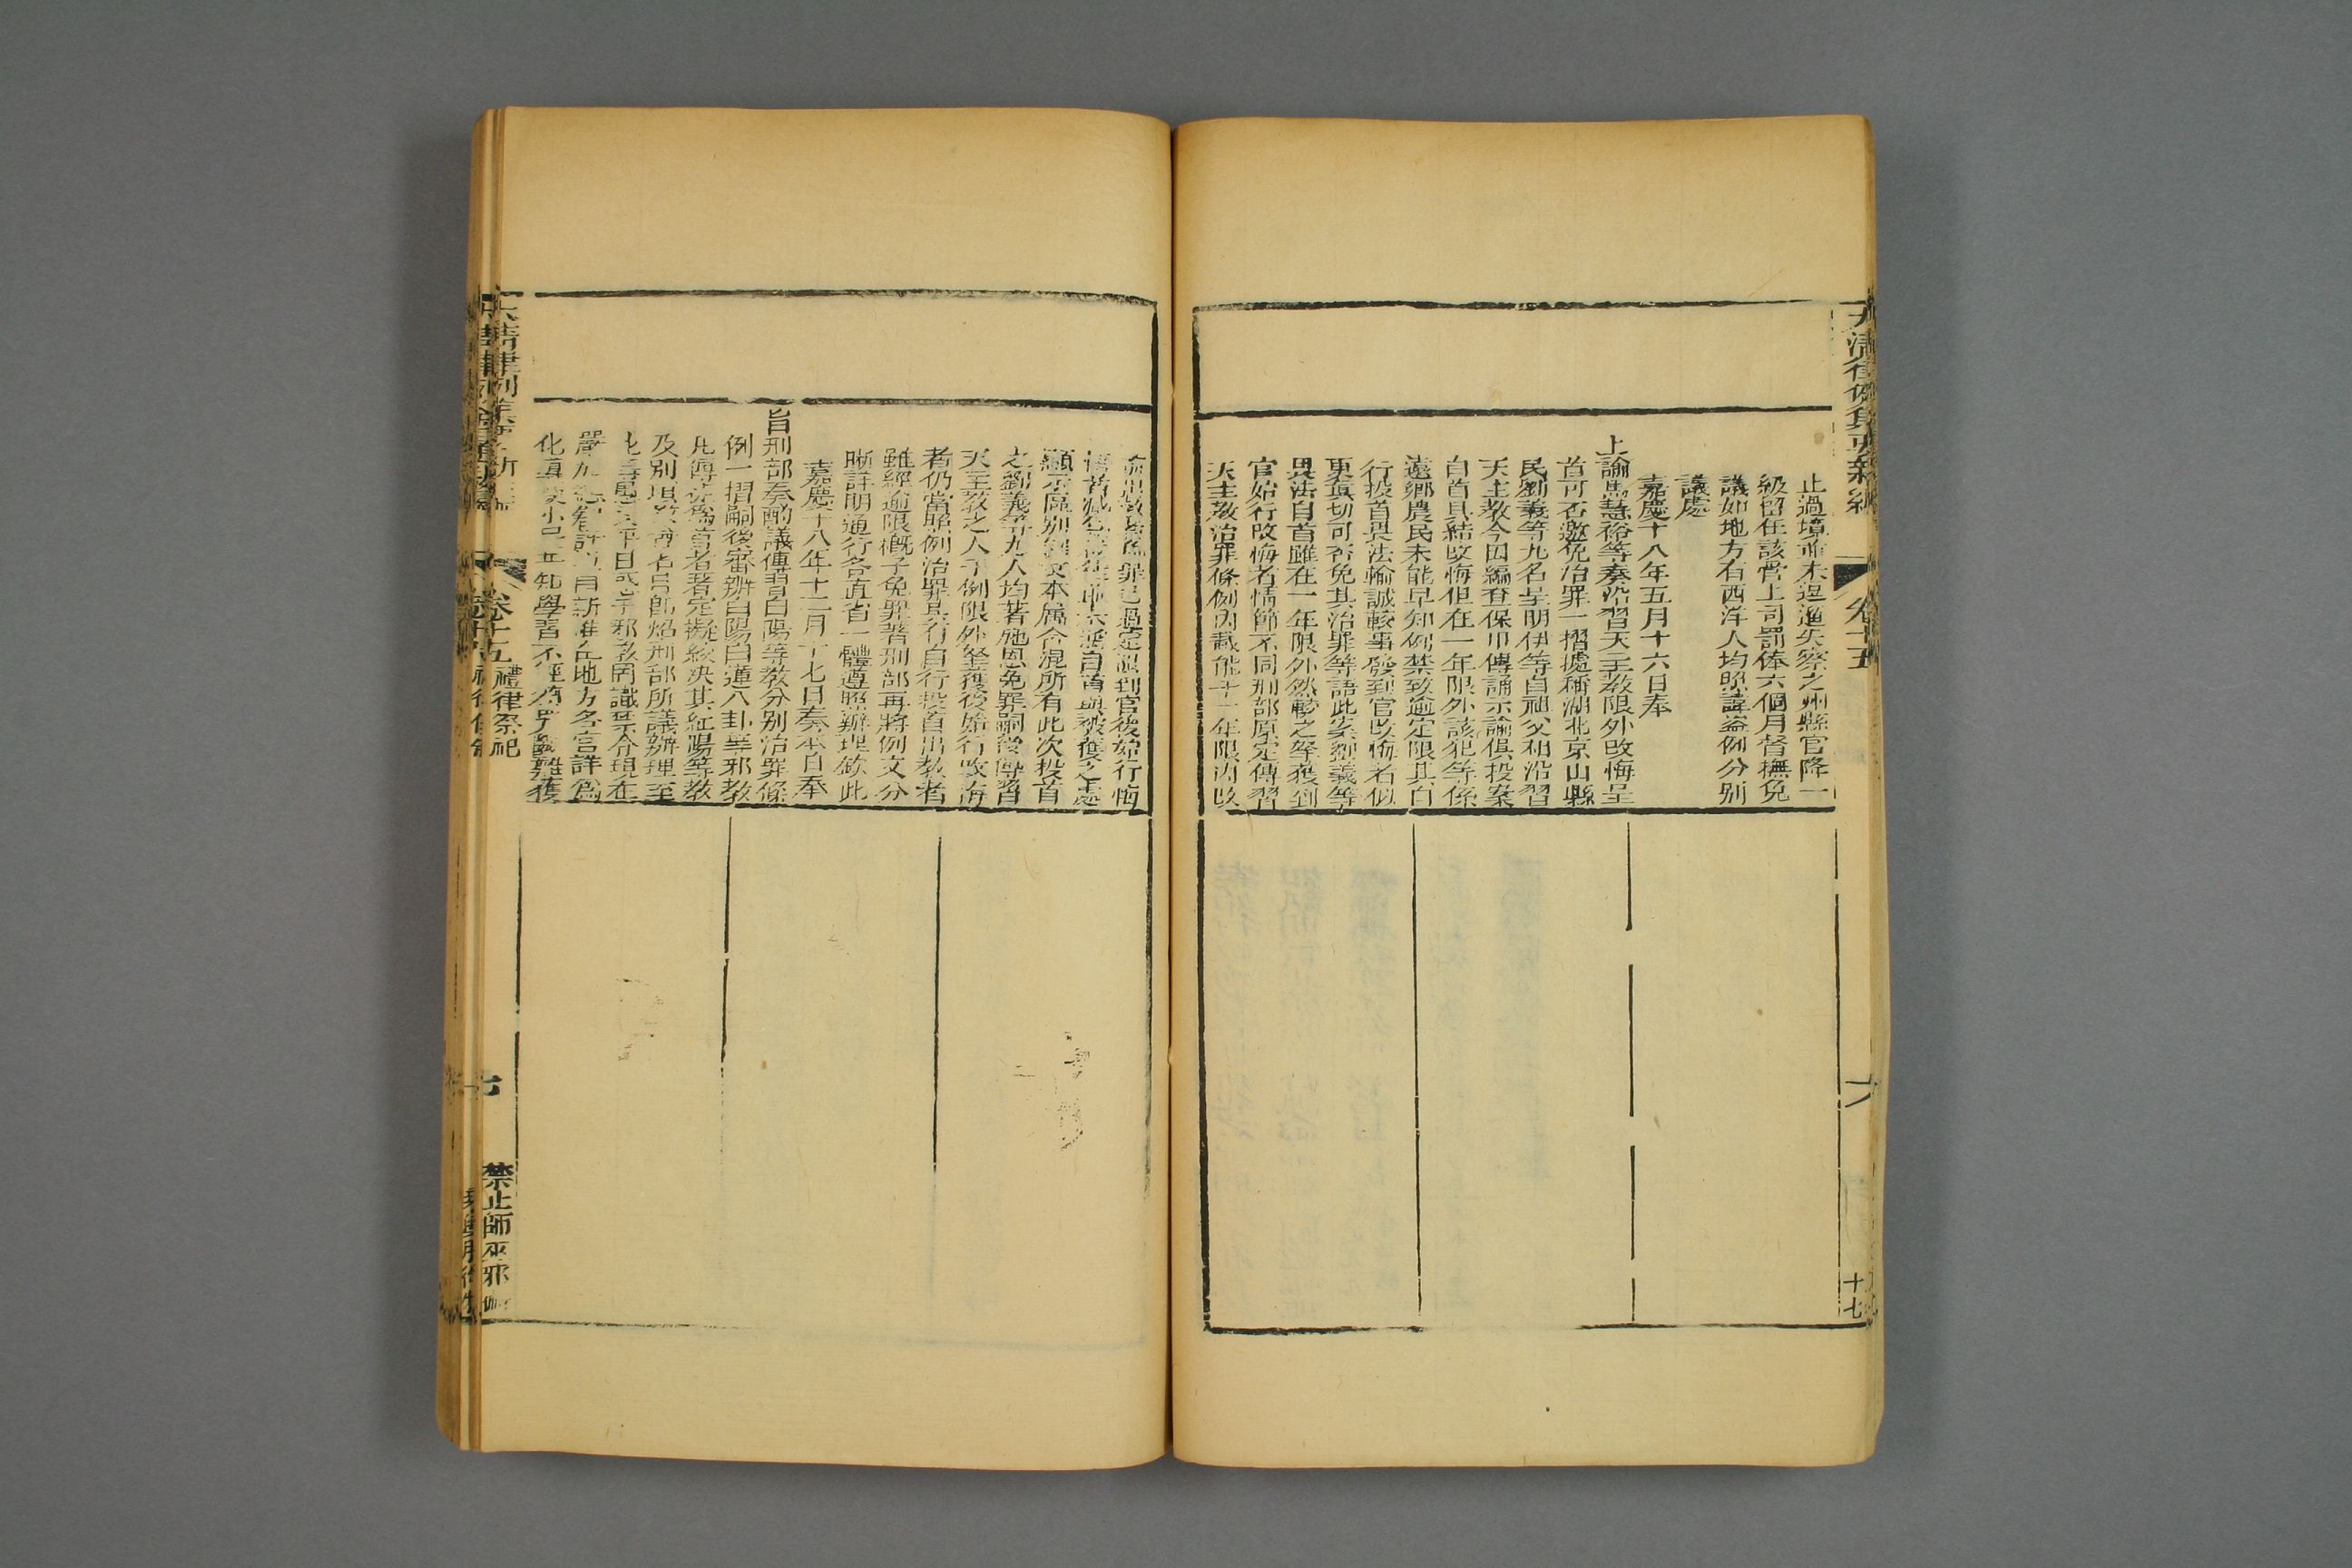 大清律例集要新編
卷十五
六
十七
止過境並未逗遛失察之州縣官降一
級留任該管上司罰俸六個月督撫免
議如地方有西洋人均照諱盜例分別
議處
嘉慶十八年五月十六日奉
上諭馬慧裕等奏沿習天主教限外改悔呈
首可否邀免治罪一摺據稱湖北京山縣
民劉義等九名呈明伊等自祖父相沿習
天主教今因編查保甲傳誦示諭俱投案
自首具結改悔但在一年限外該犯等係
遠鄉農民未能早知例禁致逾定限其自
行投首畏法輸誠較事發到官改悔者似
更真切可否免其治罪等語此案劉義等
畏法自首雖在一年限外然較之拏獲到
官始行改悔者情節不同刑部原定傳習
天主教治罪條例內載能于一年限內改
官後始行悔
自首與被獲之
顯示區別例文本屬含混所有此次投首
之劉義等九人均著施恩免罪嗣後傳習
天主教之人于例限外拏獲後始行改悔
者仍當照例治罪其有自行投首出教者
雖經逾限概予免罪著刑部再將例文分
晰註明通行各直省一體遵照辦理欽此
嘉慶十八年十二月十七日奏本日奉
旨刑部奏酌議傳習白陽等教分別治罪條
例一摺嗣後審辦白陽白蓮八卦等邪教
凡傳徒為首者著定擬絞決其紅陽等教
及別項 名目即照刑部所議辦理至
平日 邪教罔識禁令現在
自新 地方各官詳為
化 學習不經 獲
卷十五 禮律祭祀
七
禁止師巫邪術